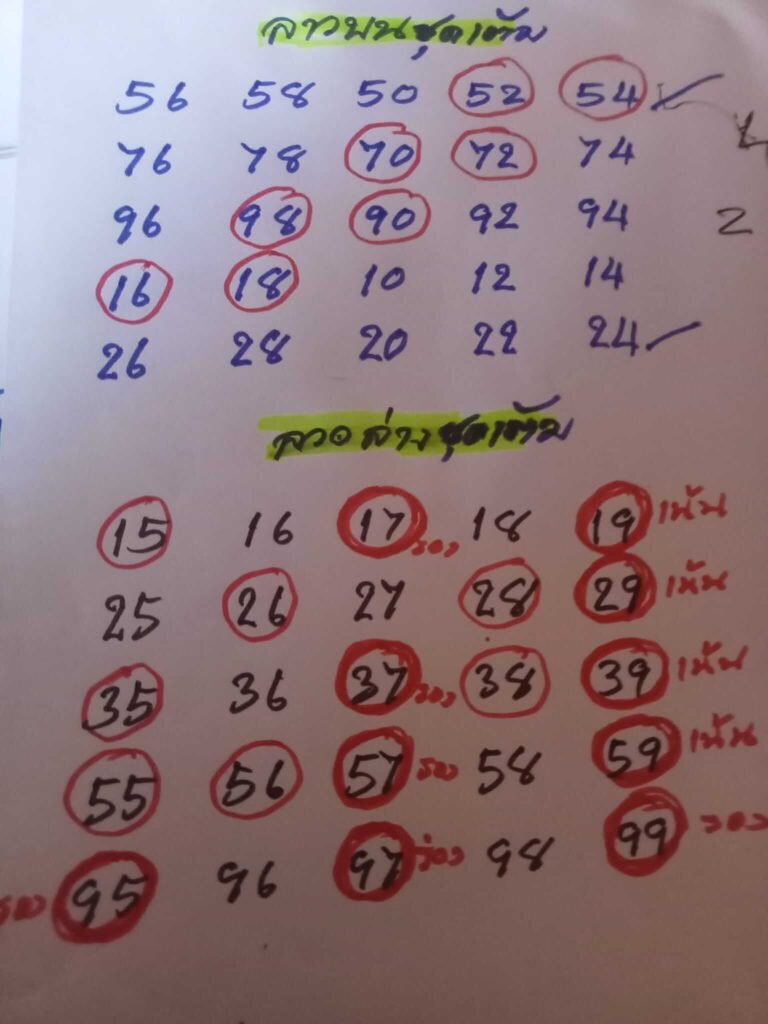 ลาวบนชุดเต็ม
56 58 50 52 54
76 78 70 72 74
96 98 90 92 94 2
16 18 10 12 14
26 28 20 22 24
ลาวล่างชุดเต็ม
15 16 17 รอง 18 19 เน้น
25 26 27 28 29 เน้น
35 36 37 รอง 38 39 เน้น
55 56 57 รอง 58 59 เน้น
รอง 95 96 97 รอง 98 99 รอง